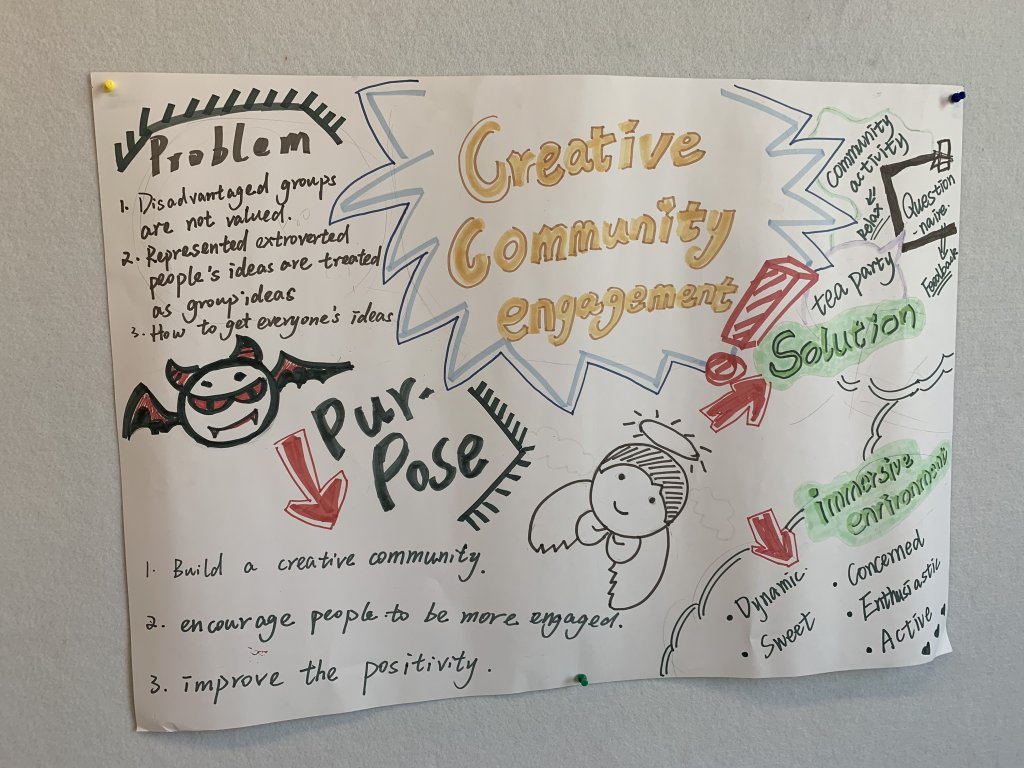 Problem
1. Disadvantaged groups
are not valued.
2. Represented extroverted
people's ideas are treated
as group ideas
3. How to get everyone's ideas
Creative
Community
engagement
community
activity
relax
Question
-naive.
Feedback
tea party
Solution
Pur-
Pose
1. Build a creative community.
2. encourage people to be more engaged.
3. improve the positivity.
immersive
environment
• Dynamic.
• Sweet
• Concerned
• Enthusiastic
• Active